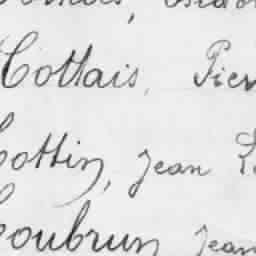 Cottais, Pier
Cottin, Jean
Coubrun Jean